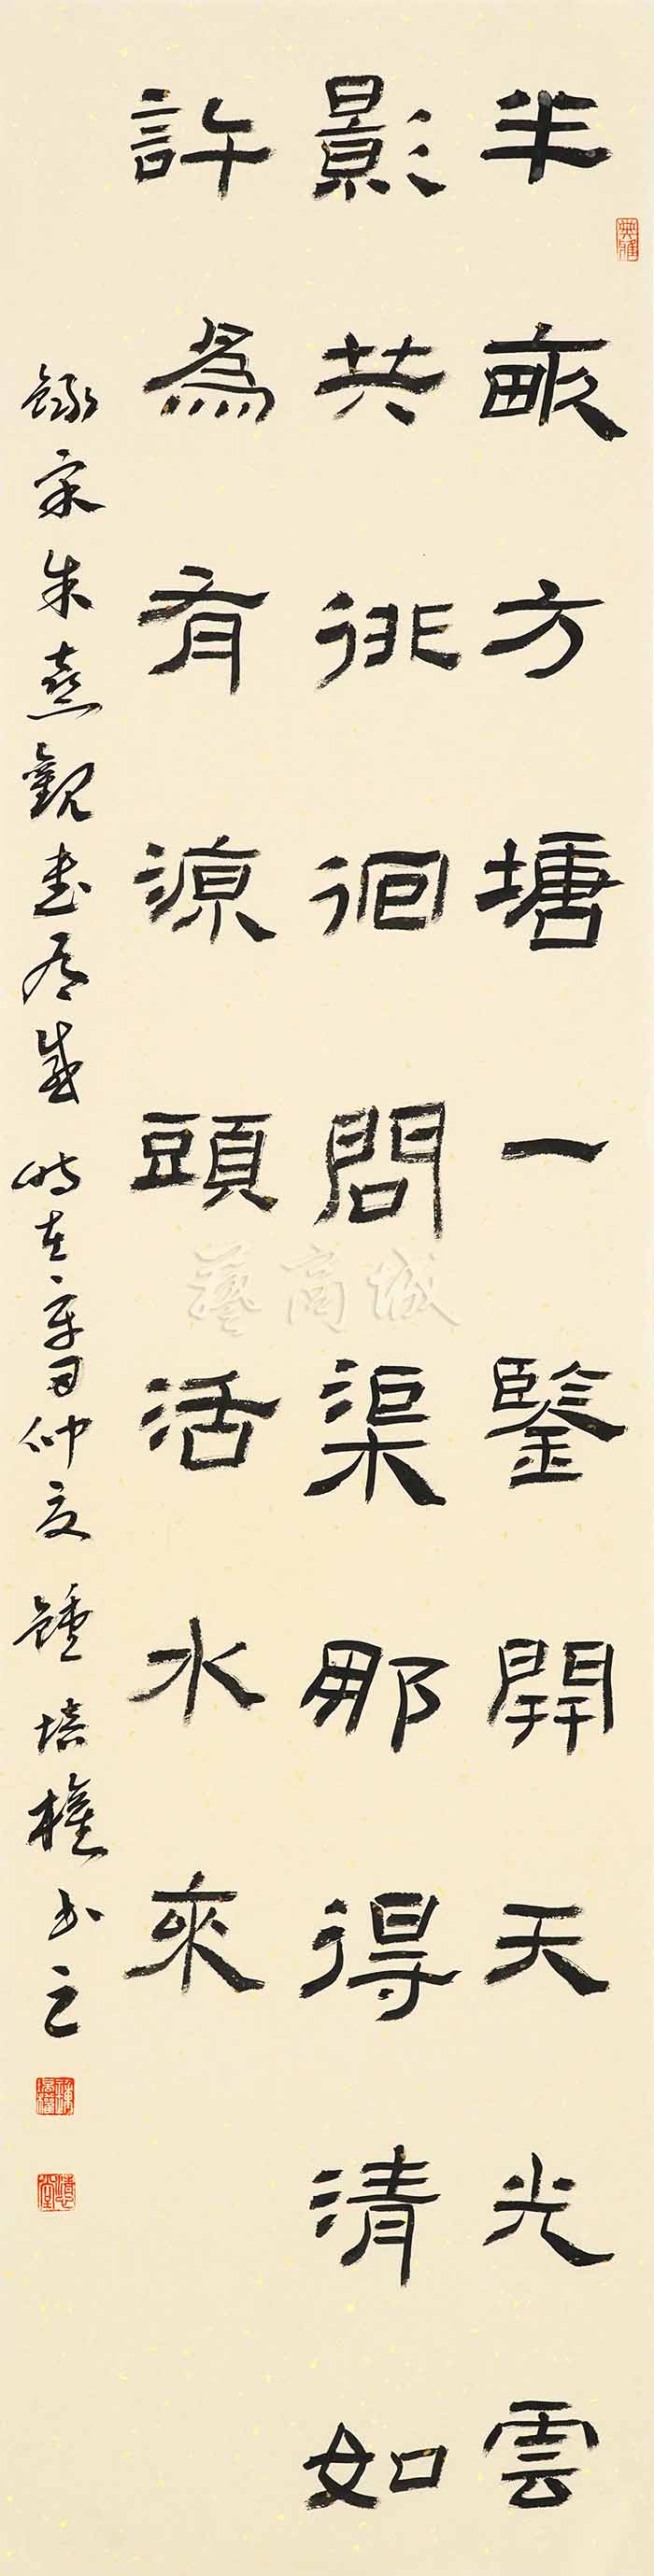 半畝方塘一鑒開天光雲
影共徘徊問渠那得清如
許為有源頭活水來
錄宋朱熹觀書有感 時在辛丑仲夏 鍾培權書之
典雅
藝商城